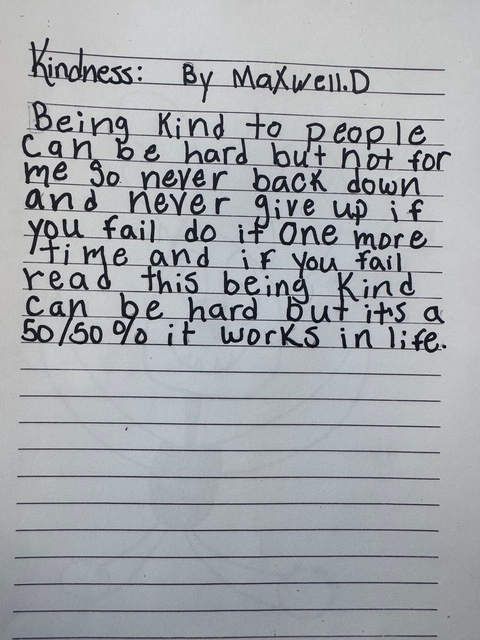 Kindness: By Maxwell.D
Being Kind to people
can be hard but not for
me so never back down
and never give up if
you fail do it one more
time and if you fail
read this being Kind
can be hard but it's a
50/50% it works in life.